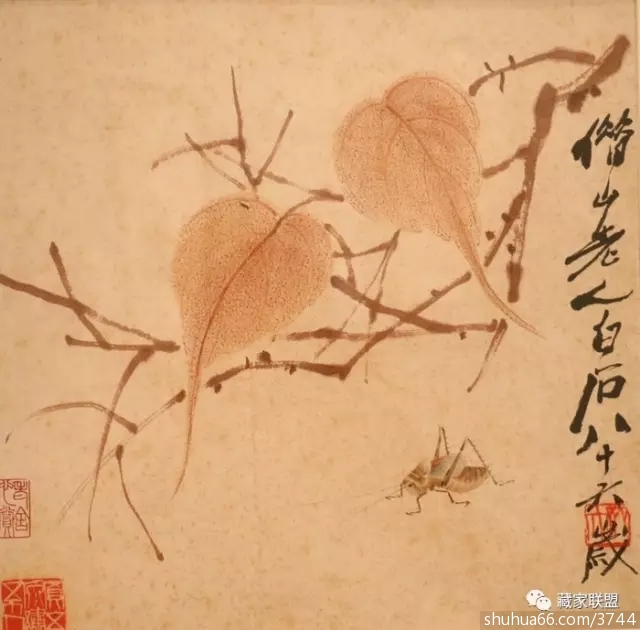 借山老人白石八十六歲
藏家联盟
shuhua66.com/3744